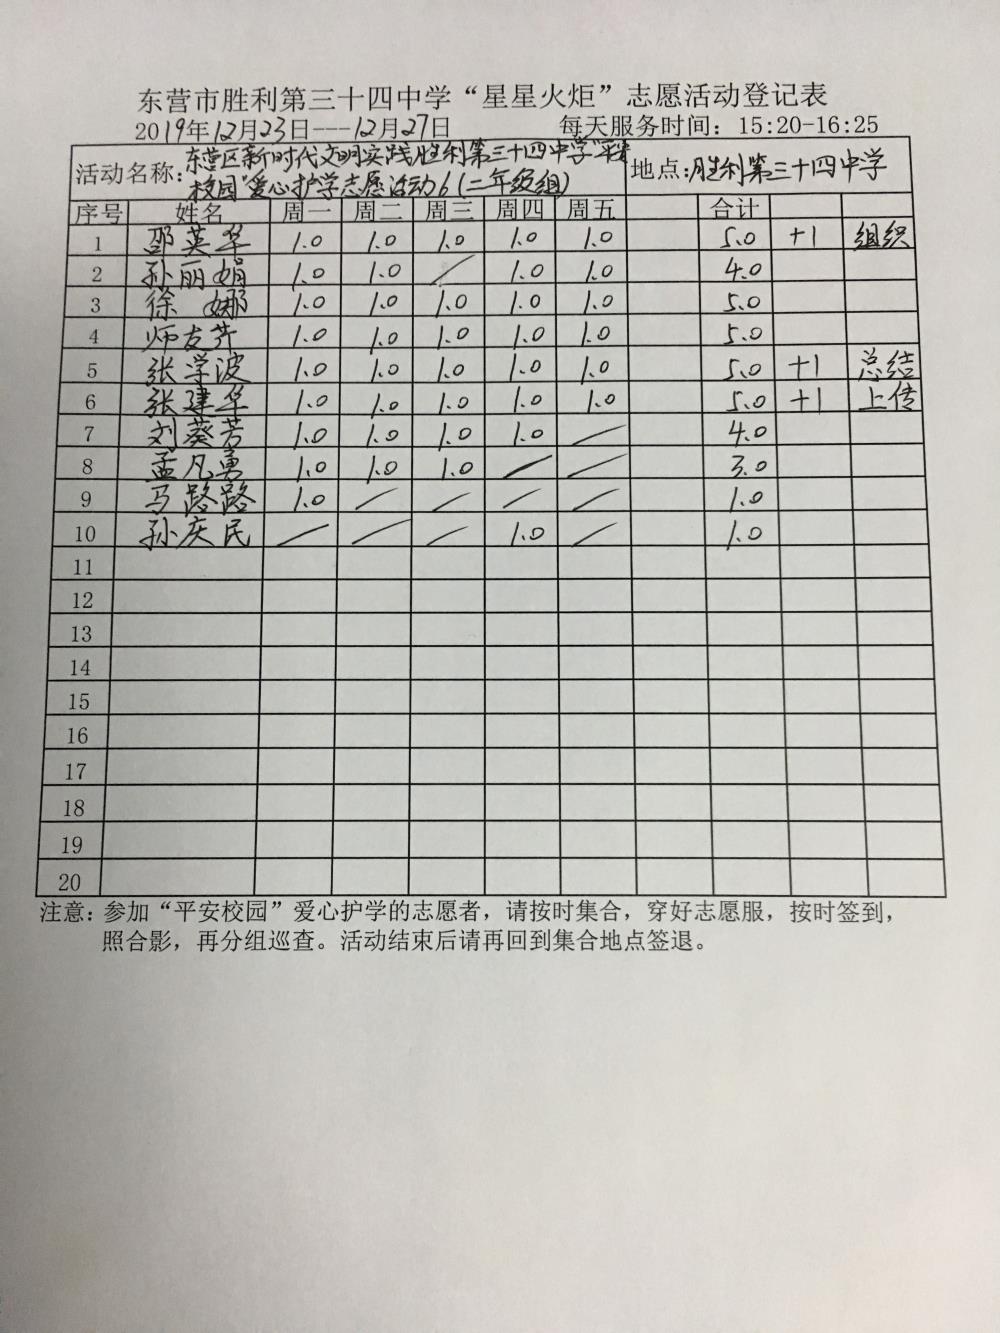 东营市胜利第三十四中学“星星火炬”志愿活动登记表
2019年12月23日---12月27日 每天服务时间：15:20-16:25
活动名称: 东营区新时代文明实践胜利第三十四中学“平安 地点: 胜利第三十四中学
校园”爱心护学志愿活动6（二年级组）
序号 姓名 周一 周二 周三 周四 周五 合计
1 邵英华 1.0 1.0 1.0 1.0 1.0 5.0 +1 组织
2 孙丽娟 1.0 1.0 / 1.0 1.0 4.0
3 徐娜 1.0 1.0 1.0 1.0 1.0 5.0
4 师友芹 1.0 1.0 1.0 1.0 1.0 5.0
5 张学波 1.0 1.0 1.0 1.0 1.0 5.0 +1 总结
6 张建华 1.0 1.0 1.0 1.0 1.0 5.0 +1 上传
7 刘葵芳 1.0 1.0 1.0 1.0 / 4.0
8 孟凡勇 1.0 1.0 1.0 / / 3.0
9 马路路 1.0 / / / / 1.0
10 孙庆民 / / / 1.0 / 1.0
11
12
13
14
15
16
17
18
19
20
注意：参加“平安校园”爱心护学的志愿者，请按时集合，穿好志愿服，按时签到，
照合影，再分组巡查。活动结束后请再回到集合地点签退。